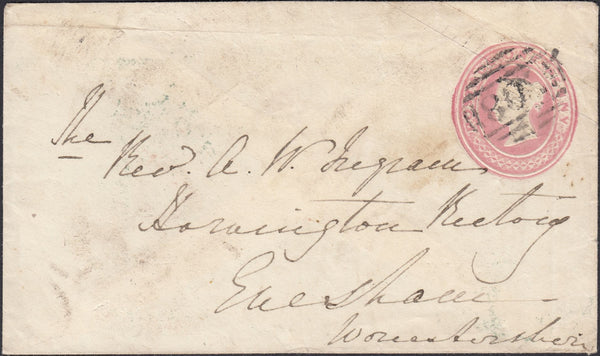 The
Rev. A. W. Ingram
Harvington Rectory
Evesham
Worcestershire